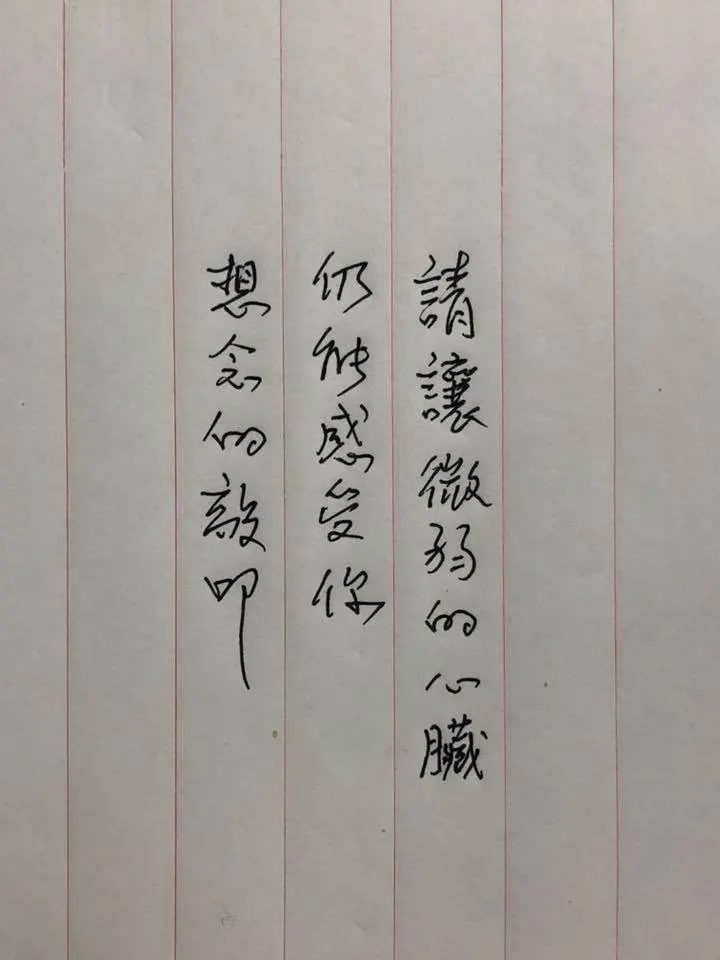 請讓微弱的心臟
仍能感受你
想念的敲叩